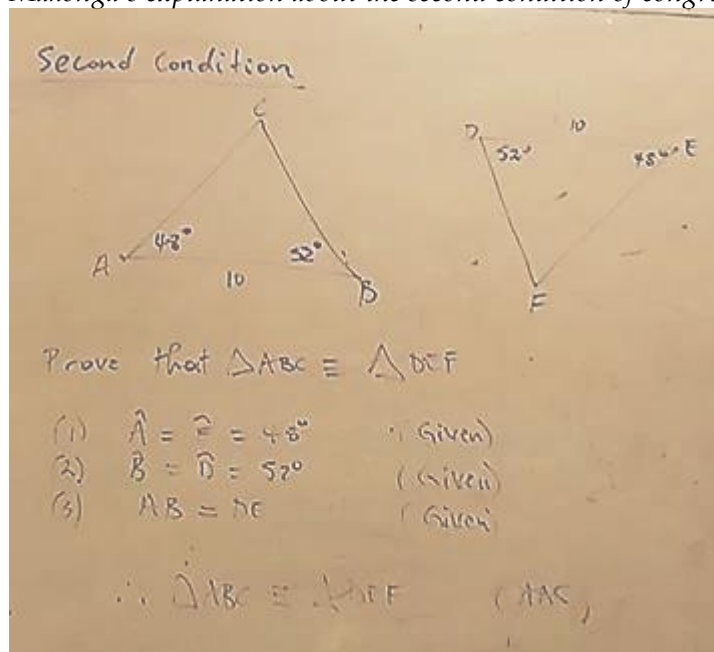 Second Condition
C
D
10
52°
48° E
A
48°
52°
10
B
F
Prove that △ABC ≡ △DEF
(1) Â = Ê = 48° (Given)
(2) B̂ = D̂ = 52° (Given)
(3) AB = DE (Given
∴ △ABC ≡ △DEF